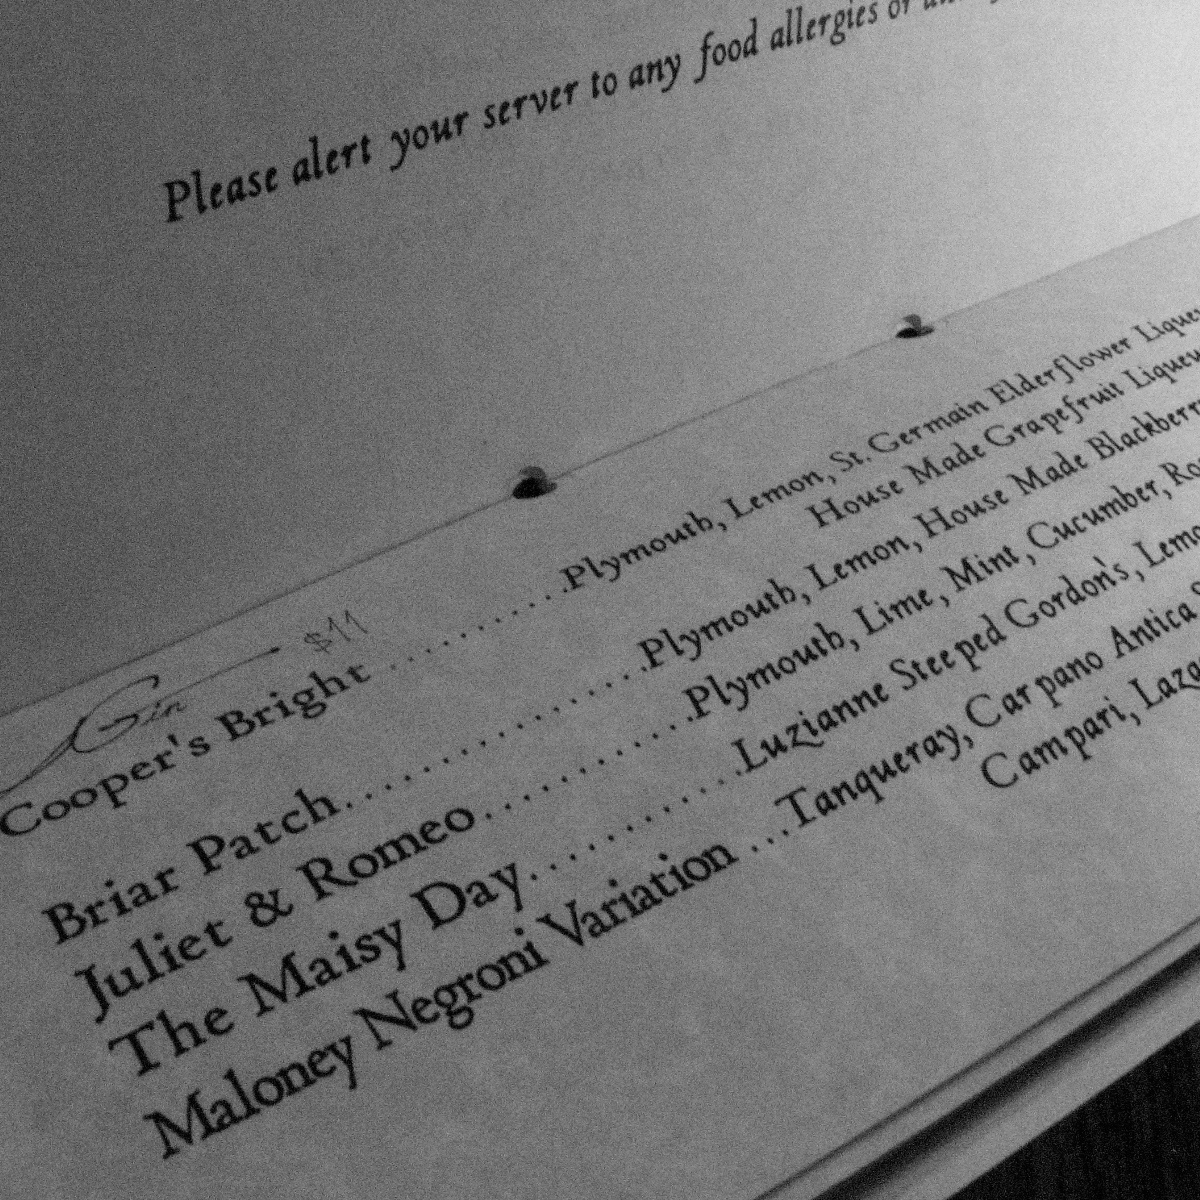 Please alert your server to any food allergies or
Gin $11
Cooper's Bright ..........Plymouth, Lemon, St. Germain Elderflower
House Made Grapefruit
Briar Patch.................Plymouth, Lemon, House Made
Juliet & Romeo............Plymouth, Lime, Mint, Cucumber,
The Maisy Day............Luzianne Steeped Gordon's,
Maloney Negroni Variation ...Tanqueray, Carpano Antica
Campari,